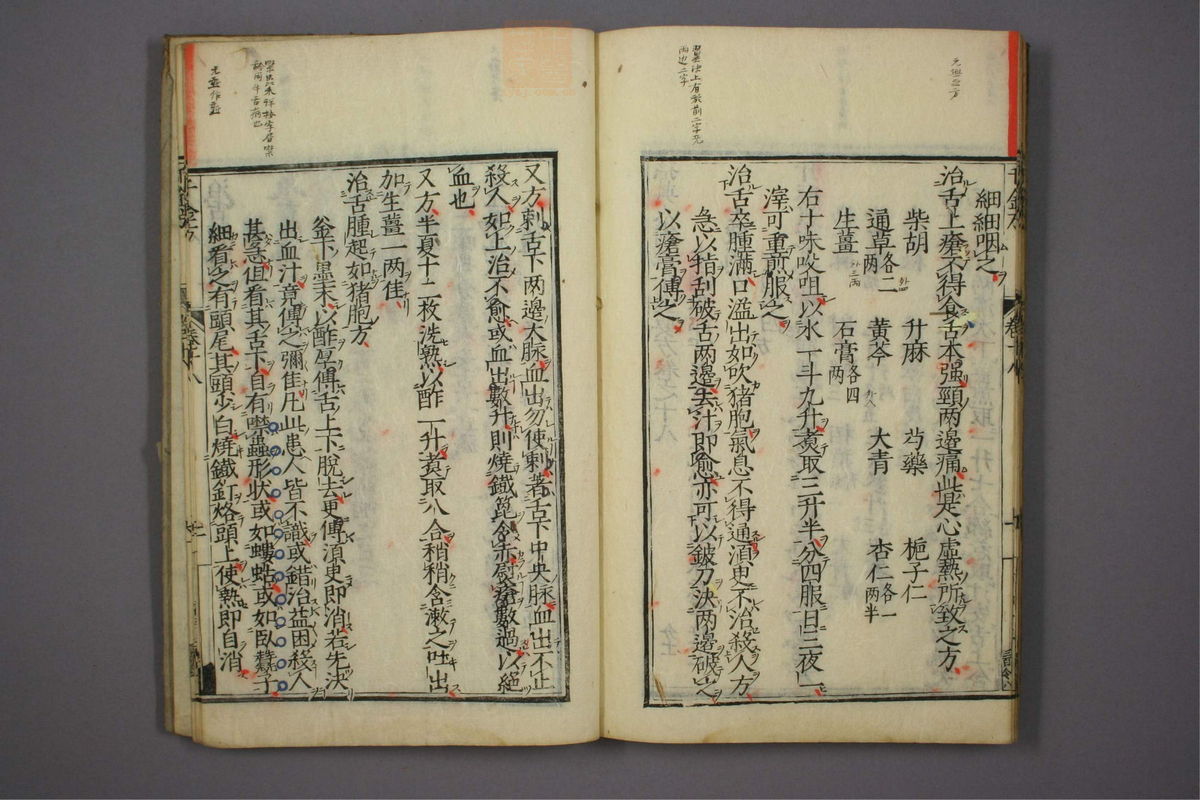 細細咽之
治舌上瘡不得食舌本強頸兩邊痛此是心虛熱所致之方
柴胡　升麻　芍藥　梔子仁
通草各二兩　黃芩　大青　杏仁各一兩半
生薑　石膏各四兩
右十味㕮咀以水一斗九升煮取三升半分四服日三夜一
滓可重煎服之
治舌卒腫滿口溢出如吹猪胞氣息不得通須臾不治殺人方
急以指刮破舌兩邊去汁即愈亦可以鈹刀決兩邊破之
以瘡膏傅之
又方刺舌下兩邊大脉血出勿使刺著舌下中央脉血出不止
殺人如上治不愈或血出數升則燒鐵篦令赤熨瘡數過以絕
血也
又方半夏十二枚洗熟以酢一升煮取八合稍稍含漱之吐出
加生薑一兩佳
治舌腫起如猪胞方
釜下墨末以酢厚傅舌上下脫去更傅須臾即消若先決
出血汁竟傅之彌佳凡此患人皆不識或錯治益困殺人
甚急但看其舌下自有噤蟲形狀或如螻蛄或如臥蠶子
細看之有頭尾其頭少白燒鐵釘烙頭上使熟即自消
千金方
卷十八